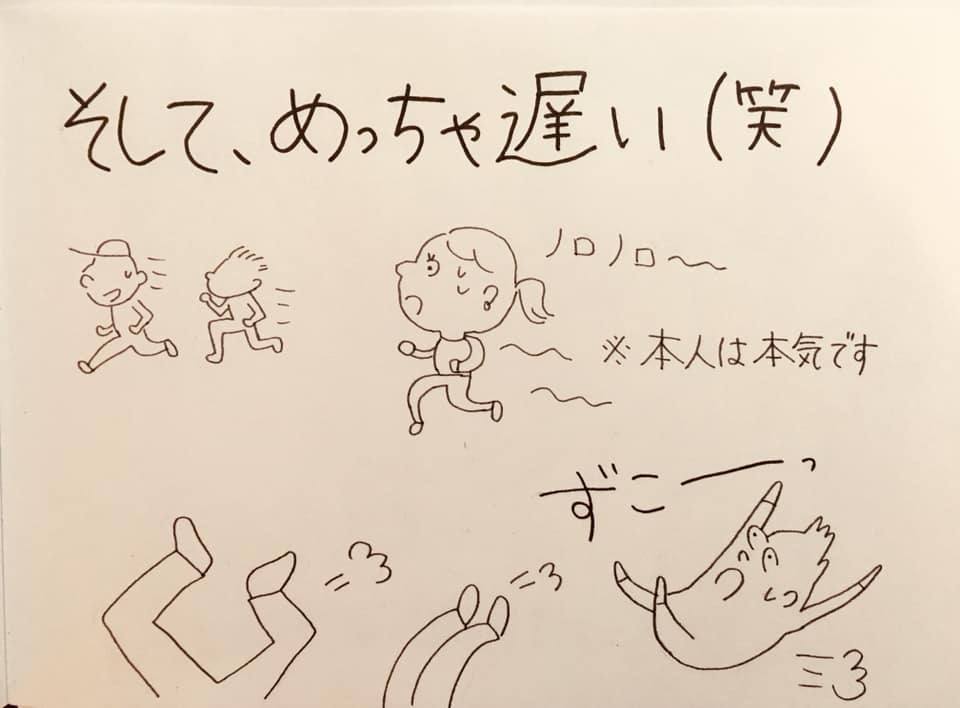 そして、めっちゃ遅い(笑)
ノロノロ〜
※本人は本気です
ずこーっ